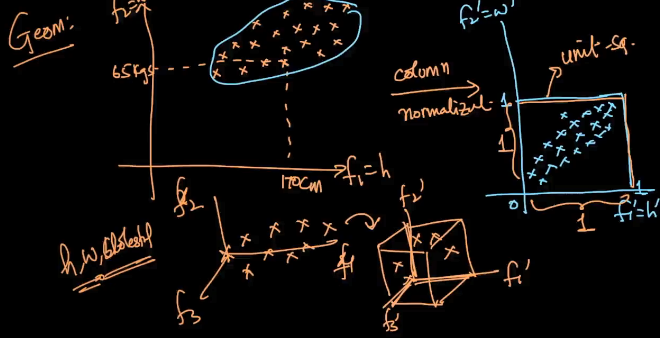 Geom:
f₂=
65kgs
170cm
f₁=h
column
normalizat.
f₂'=w'
unit-sq.
1
1
0
1
1
f₁'=h'
h, w,
f₂
f₁
f₃
f₂'
f₁'
f₃'